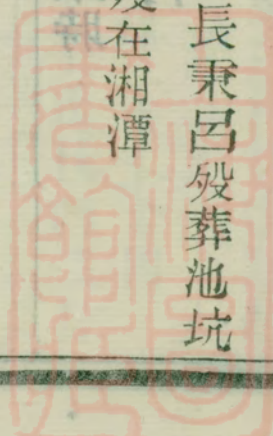 長秉呂歿葬池坑
在湘潭